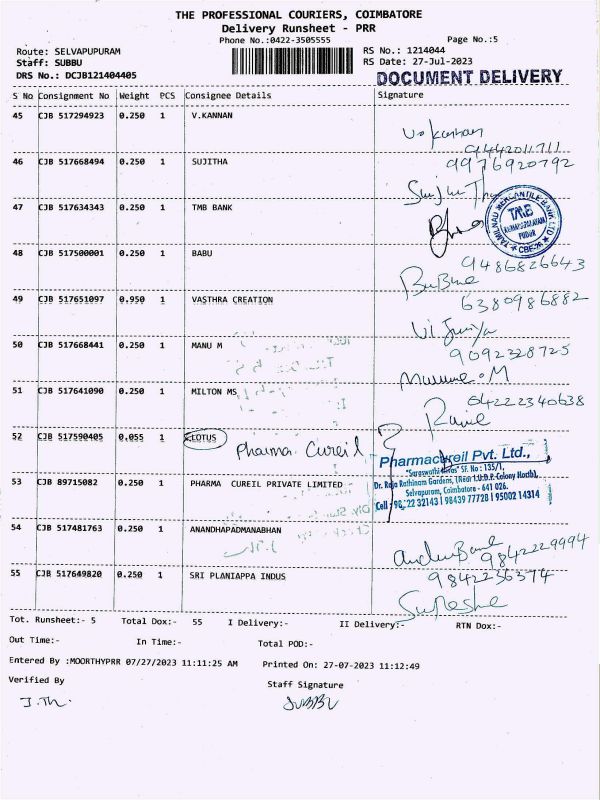 THE PROFESSIONAL COURIERS, COIMBATORE
Delivery Runsheet - PRR
Phone No.:0422-3505555
Page No.:5
Route: SELVAPUPURAM
RS No.: 1214044
Staff: SUBBU
RS Date: 27-Jul-2023
DRS No.: DCJB121404405
DOCUMENT DELIVERY
S No Consignment No Weight PCS Consignee Details Signature
45 CJB 517294923 0.250 1 V.KANNAN
V. Kannan
9442011711
46 CJB 517668494 0.250 1 SUJITHA
9976920792
47 CJB 517634343 0.250 1 TMB BANK
TAMILNAD MERCANTILE BANK LTD
TMB
CBE
48 CJB 517500001 0.250 1 BABU
9486826643
49 CJB 517651097 0.950 1 VASTHRA CREATION
6380986882
50 CJB 517668441 0.250 1 MANU M
9092328725
51 CJB 517641090 0.250 1 MILTON MS
04222340638
52 CJB 517590405 0.055 1 LOTUS
Pharma Cureil
Pharmacureil Pvt. Ltd.,
"Saraswathi Illvas" SF. No : 135/1,
Dr. Raja Rathinam Gardens, (Near 1.U.D.P. Colony North),
Selvapuram, Coimbatore - 641 026.
Cell : 98 22 32143 | 98439 77728 | 95002 14314
53 CJB 89715082 0.250 1 PHARMA CUREIL PRIVATE LIMITED
54 CJB 517481763 0.250 1 ANANDHAPADMANABHAN
9842229994
55 CJB 517649820 0.250 1 SRI PLANIAPPA INDUS
9842236374
Tot. Runsheet:- 5 Total Dox:- 55 I Delivery:- II Delivery:- RTN Dox:-
Out Time:- In Time:- Total POD:-
Entered By :MOORTHYPRR 07/27/2023 11:11:25 AM Printed On: 27-07-2023 11:12:49
Verified By Staff Signature
J.Th. SUBBU